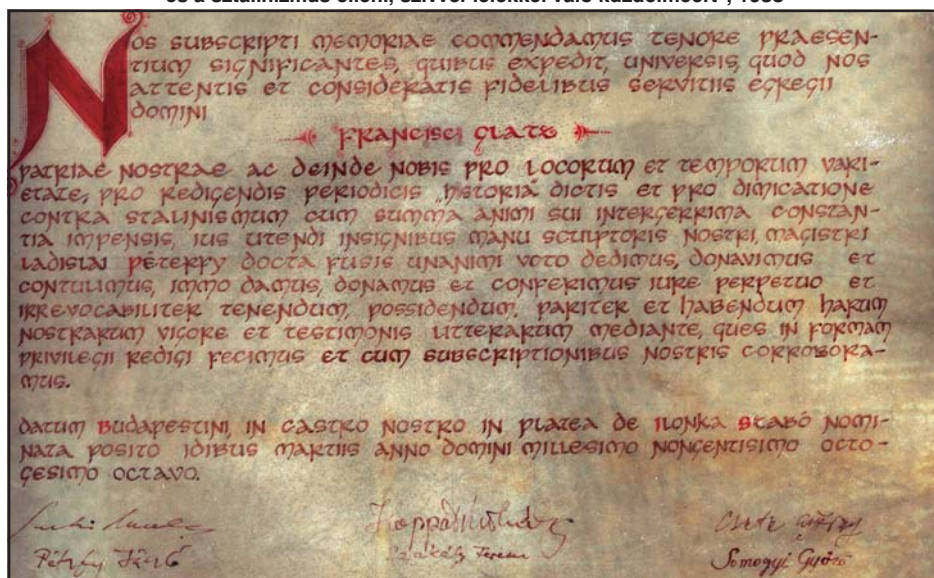 és a sztálinizmus elleni, szívvel-lélekkel való küzdelméért", 1988
NOS SUBSCRIPTI MEMORIAE COMMENDAMUS TENORE PRAESEN-
TIUM SIGNIFICANTES, QUIBUS EXPEDIT, UNIVERSIS, QUOD NOS
ATTENTIS ET CONSIDERATIS FIDELIBUS SERVITIIS EGREGII
DOMINI
FRANCISCI GLATZ
PATRIAE NOSTRAE AC DEINDE NOBIS PRO LOCORUM ET TEMPORUM VARI-
ETATE, PRO REDIGENDIS PERIODICIS „HISTORIA” DICTIS ET PRO DIMICATIONE
CONTRA STALINISMUM CUM SUMMA ANIMI SUI INTERGERRIMA CONSTAN-
TIA IMPENSIS, IUS UTENDI INSIGNIBUS MANU SCULPTORIS NOSTRI, MAGISTRI
LADISLAI PÉTERFY DOCTA FUSIS UNANIMI VOTO DEDIMUS, DONAVIMUS ET
CONTULIMUS, IMMO DAMUS, DONAMUS ET CONFERIMUS IURE PERPETUO ET
IRREVOCABILITER TENENDUM, POSSIDENDUM, PARITER ET HABENDUM HARUM
NOSTRARUM VIGORE ET TESTIMONIS LITTERARUM MEDIANTE, QUES IN FORMAM
PRIVILEGII REDIGI FECIMUS ET CUM SUBSCRIPTIONIBUS NOSTRIS CORROBORA-
MUS.
DATUM BUDAPESTINI, IN CASTRO NOSTRO IN PLATEA DE ILONKA SZABÓ NOMI-
NATA POSITO IDIBUS MARTIIS ANNO DOMINI MILLESIMO NONGENTISIMO OCTO-
GESIMO OCTAVO.
Szakály Ferenc Somogyi Győző